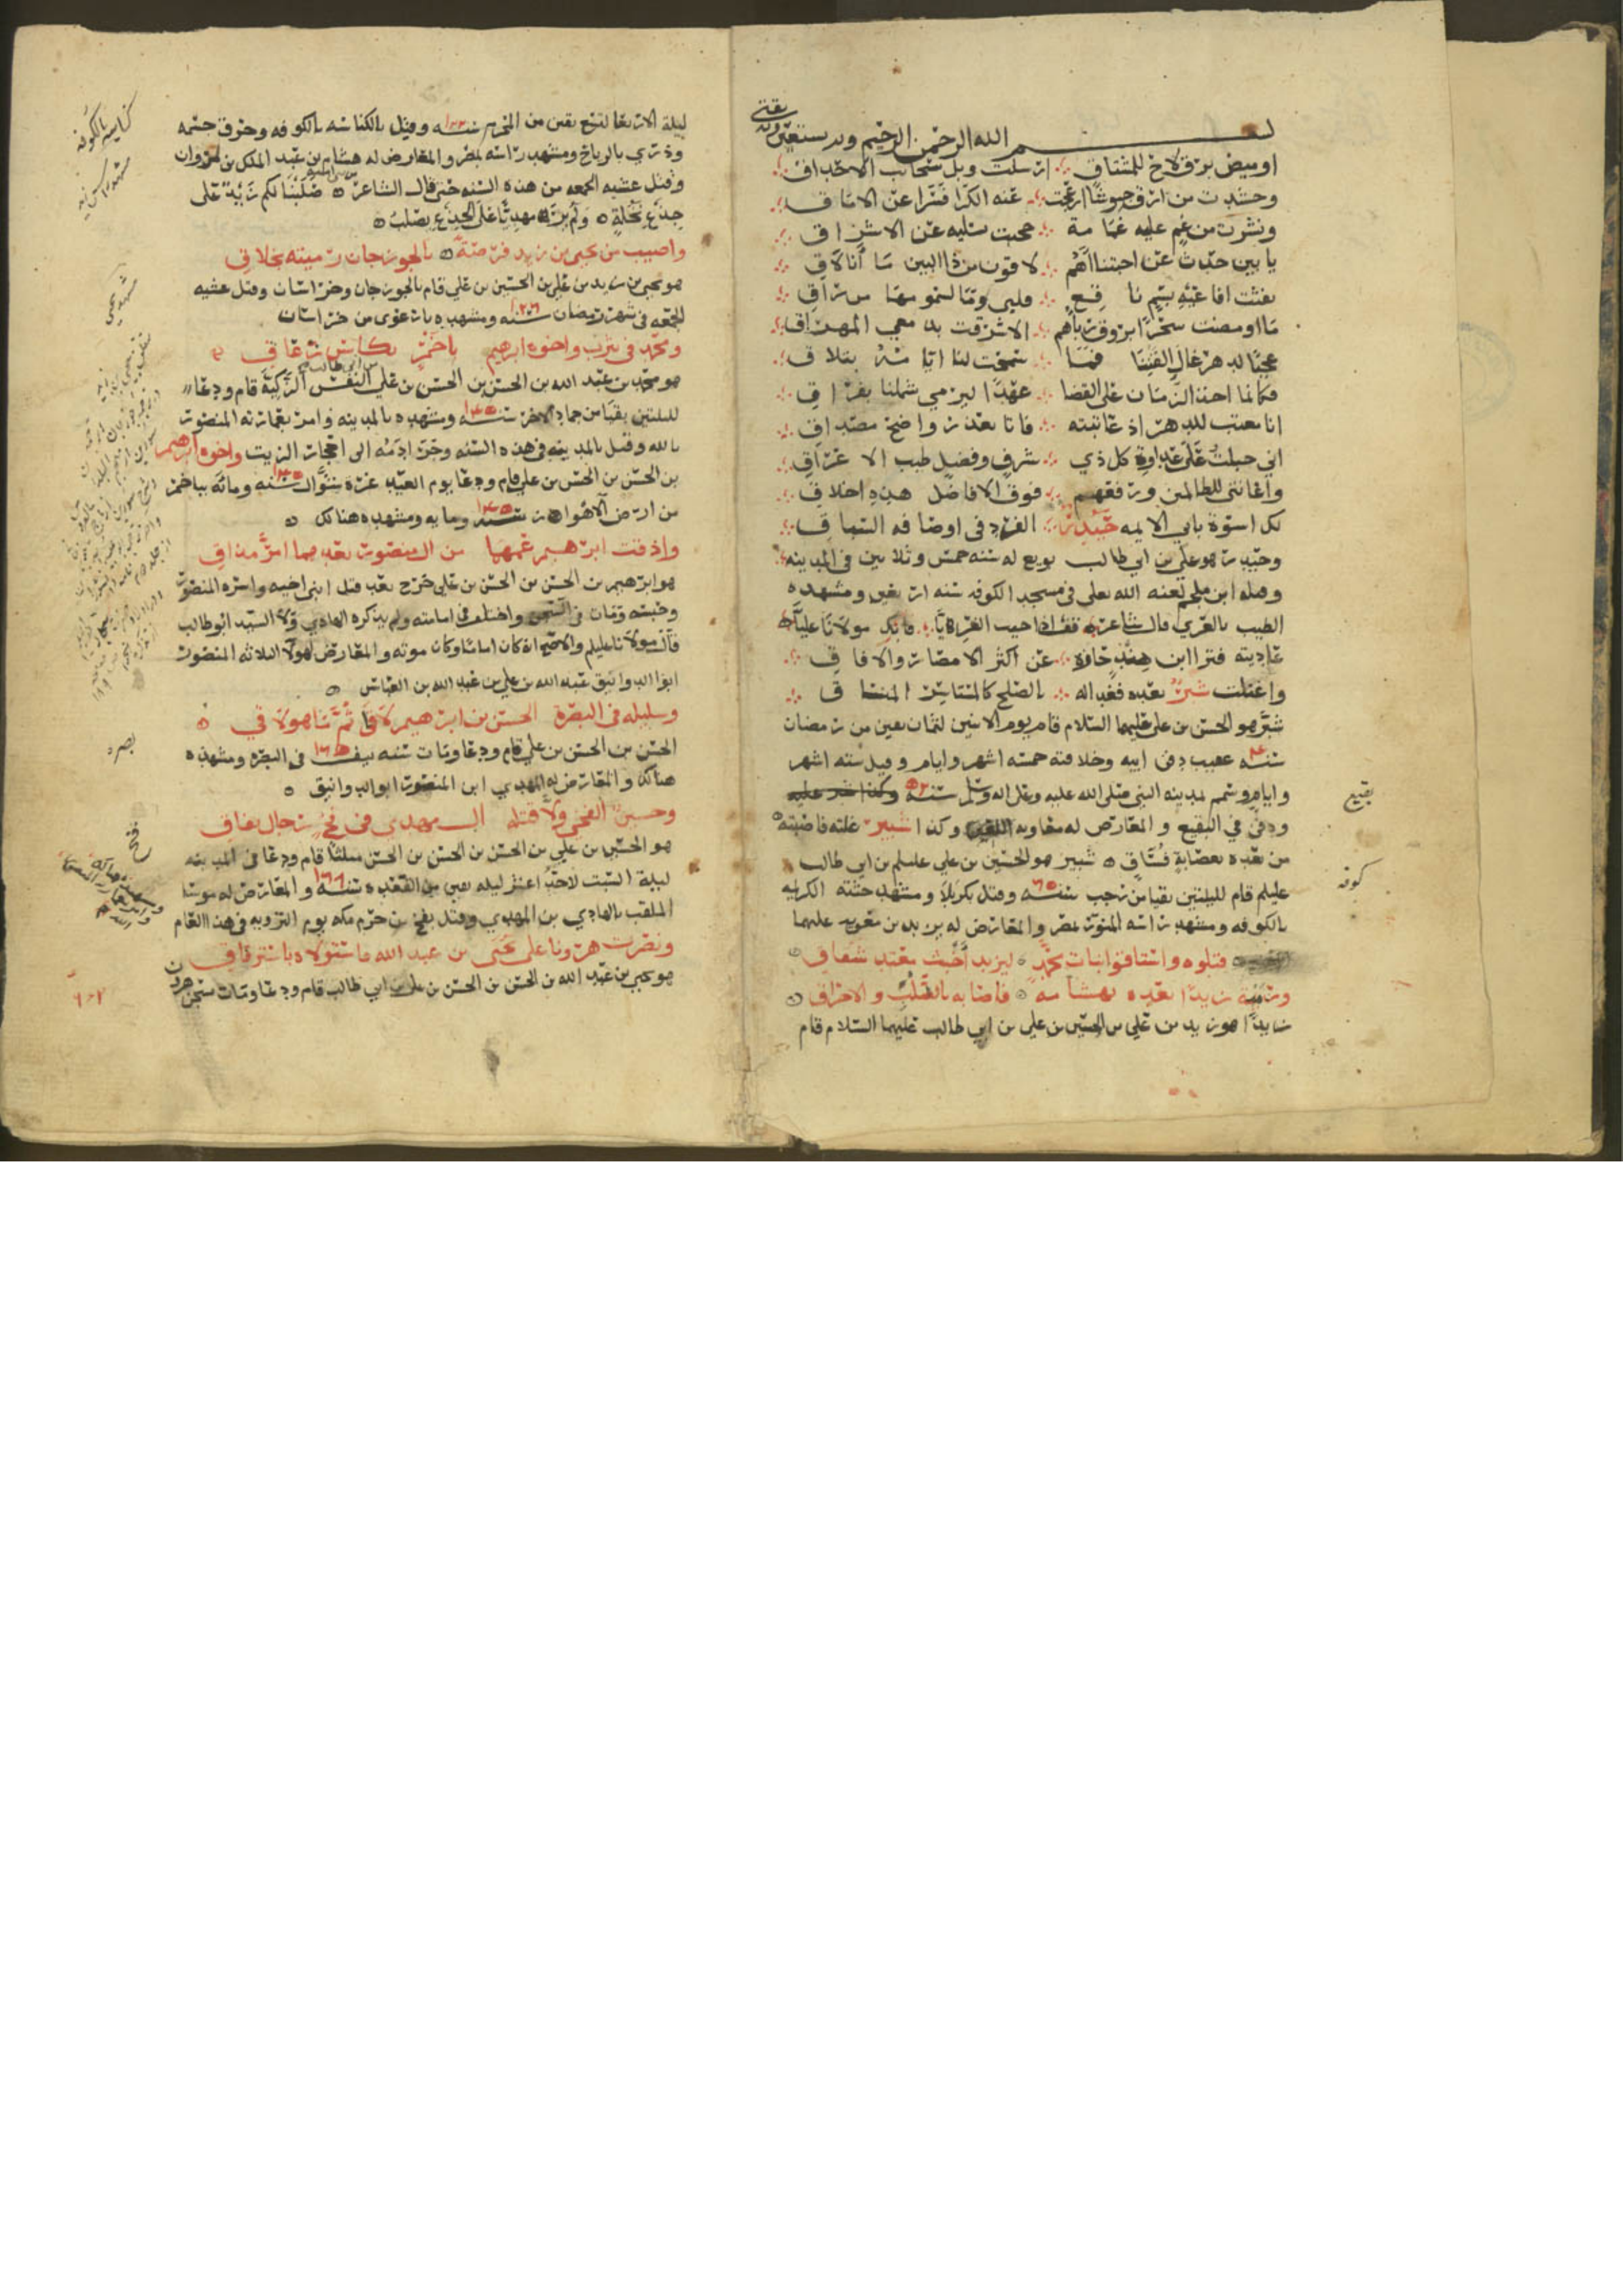 بسم الله الرحمن الرحيم وبه نستعين
اوميض برق لاح للمشتاق ارسلت وبل سحائب الاحداق
وحشدت من ارق جيوشا ازعجت عنه الكرا قسرا عن الاماق
ونشرت من غم عليه غمامة حجبت تسليه عن الاشراق
يا بين حدث عن احبتنا الهم لاقون من ذا البين ما أنا لاق
نفثت افاعيه بسم نافع
ما اومضت سحرا بروق رباهم الاشرقت بدمعي المهراق
عجبا لدهر غال الفتنا فما سمحت لنا ايامه بتلاق
فكانما اخذ الزمان على القضا عهدا ليرمي شملنا بفراق
انا معتب للدهر اذ عاتبته فاتا بعذر واضح مصداق
اني جبلت على عداوة كل ذي شرف وفضل طيب الاعراق
واعانتي للظالمين ورفعهم فوق الافاضل هذه اخلاق
لك اسوة بابي الايمه حيدر الفرد في اوصافه السباق
وحيدر هو علي بن ابي طالب بويع له سنه خمس وثلاثين في المدينه
وقتله ابن ملجم لعنه الله تعلى في مسجد الكوفه سنه اربعين ومشهده
الطيب بالغري قال الشاعر
غاديته فترا ابن هند حازه عن اكثر الامصار والافاق
واغتلت شبر بعده فغدا له بالصلح كالمستاسر المنساق
شبر هو الحسن بن علي عليهما السلام قام يوم الاثنين لثمان بقين من رمضان
سنه ٤٠ عقيب دفن ابيه وخلافته خمسه اشهر وايام وقيل سته اشهر
وايام وسم بمدينه النبي صلى الله عليه وعلى اله وسلم سنه
ودفن في البقيع والمعارض له معاويه اللعين وكذا شبير غلته فاصبته
من بعده بعصابة فساق شبير هو الحسين بن علي عليلم بن ابي طالب
عليلم قام لليلتين بقيا من رجب سنه ٦٠ وقتل بكربلا ومشهد جثته الكريمه
بالكوفه ومشهد راسه المنور بمصر والمعارض له يزيد بن معويه عليهما
قتلوه واستاقوا بنات محمد ليزيد أخبث معتد شقاق
ورميت زيدا بعده بهشامه فاصابه بالصلب والاحراق
زيدا هو زيد بن علي بن الحسين بن علي بن ابي طالب عليهما السلام قام
بقيع
كوفه
ليلة الاربعا لسبع بقين من المحرم سنه ١٢٢ وقتل بالكناسه بالكوفه وحرق جسمه
وذري بالرياح ومشهد راسه بمصر والمعارض له هشام بن عبد الملك بن مروان
وقتل عشيه الجمعه من هذه السنه حتى قال الشاعر صلبنا لكم زيدا على
جذع نخلة ولم نر مهديا على الجذع يصلب
واصيب من يحيى بن زيد فرصة بالجوزجان رميته بخلاق
هو يحيى بن زيد بن علي بن الحسين بن علي قام بالجوزجان وخراسان وقتل عشيه
الجمعه في شهر رمضان سنه ١٢٦ ومشهده بارعوى من خراسان
ومحمد في يثرب واخوه ابرهيم باخمر بكاس زعاق
هو محمد بن عبد الله بن الحسن بن الحسن بن علي النفس الزكية قام ودعا
لليلتين بقيا من جماد الاخر سنه ١٤٥ ومشهده بالمدينه وامر بعمارته المنصور
بالله وقتل بالمدينه في هذه السنه وجرى دمه الى احجار الزيت واخوه ابرهيم
بن الحسن بن الحسن بن علي قام ودعا يوم العيد غرة شوال سنه ١٤٥ ومائه بباخمر
من ارض الاهواز سنه ١٤٥ ومايه ومشهده هنالك
واذقت ابرهيم عمهما من المنصور بعدهما امر مذاق
هو ابرهيم بن الحسن بن الحسن بن علي خرج بعد قتل ابني اخيه واسره المنصور
وحبسه ومات في السجن واختلف في امامته ولم يذكره الهادي ولا السيد ابو طالب
قال مولانا عليلم والاصح انه كان اماما وكان موته والمعارض لهولا الثلاثه المنصور
ابو الدوانيق عبد الله بن علي بن عبد الله بن العباس
وسليله في البصرة الحسن بن ابرهيم لاقا ثم ما هو لاقي
الحسن بن الحسن بن علي قام ودعا ومات سنه نيف في البصره ومشهده
هنالك والمعارض له المهدي ابن المنصور ابو الدوانيق
وحسين الفخي ولا قتله ال مهدي في فخ رجال نفاق
هو الحسين بن علي بن الحسن بن الحسن بن الحسن مثلثا قام ودعا في المدينه
ليلة السبت لاحد عشر ليله بقين من القعده سنه ١٦٩ والمعارض له موسى
الملقب بالهادي بن المهدي وقتل بفخ من حرم مكه يوم الترويه في هذا العام
ونصرت هرونا على يحيى بن عبد الله
هو يحيى بن عبد الله بن الحسن بن الحسن بن علي بن ابي طالب قام ودعا ومات بسجن هرون
كناسه بالكوفه
مشهد يحيى
بصره
فخ